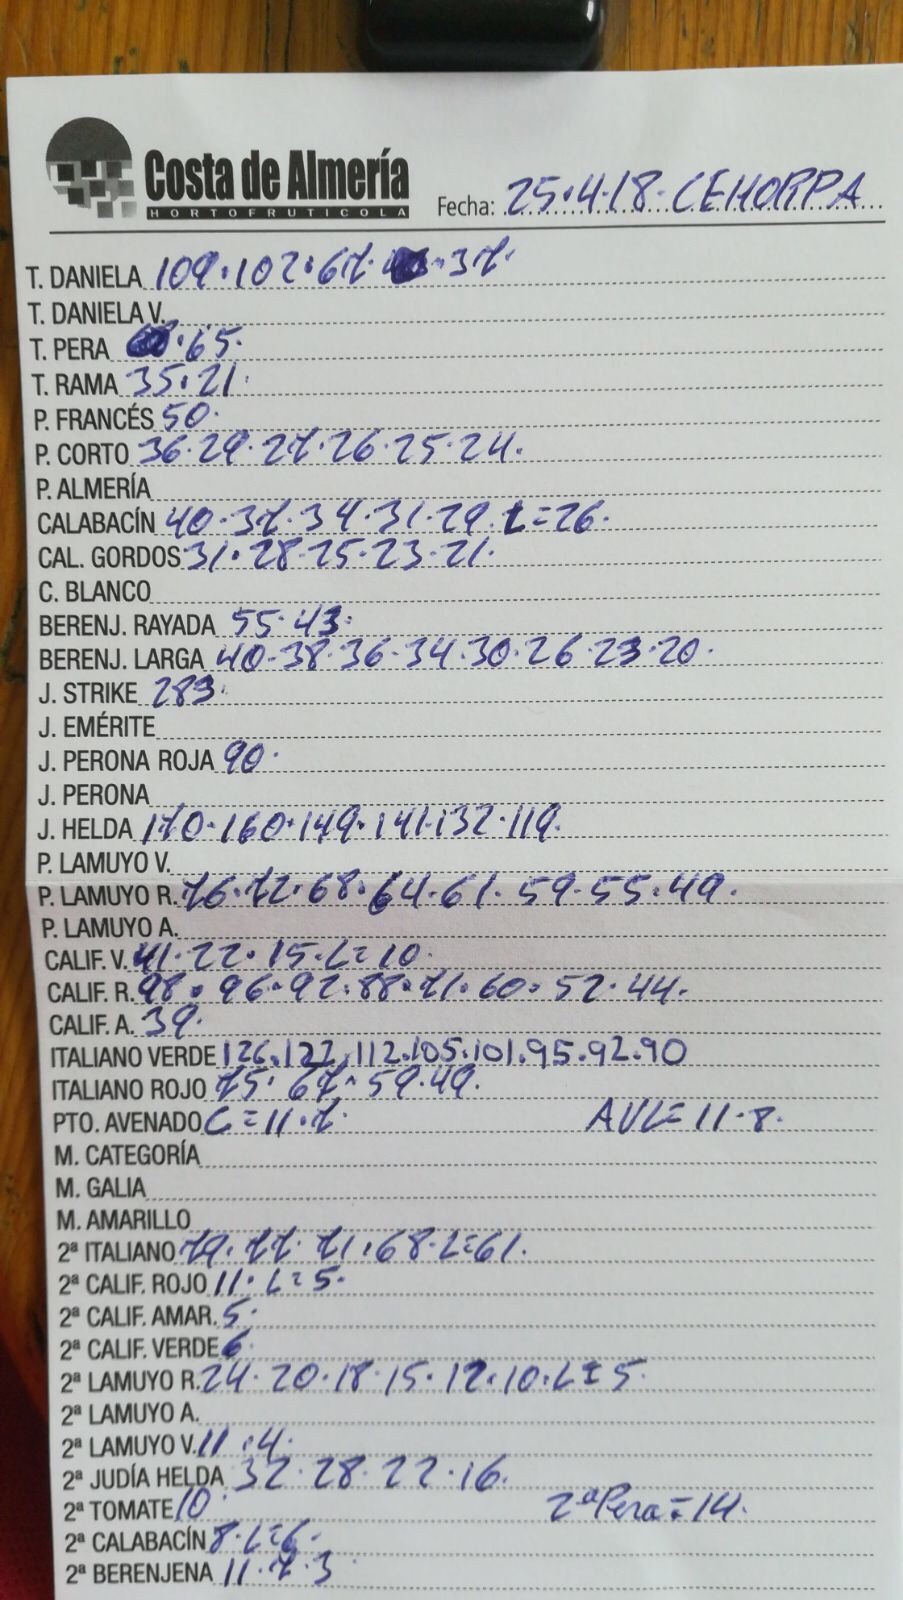 Costa de Almería
HORTOFRUTICOLA
Fecha: 25.4.18. CEHORPA
T. DANIELA 109.102.67. .37.
T. DANIELA V.
T. PERA .65.
T. RAMA 35.21.
P. FRANCÉS 50.
P. CORTO 36.29.27.26.25.24.
P. ALMERÍA
CALABACÍN 40.37.34.31.29.L=26.
CAL. GORDOS 31.28.25.23.21.
C. BLANCO
BERENJ. RAYADA 55.43.
BERENJ. LARGA 40.38.36.34.30.26.23.20.
J. STRIKE 283.
J. EMÉRITE
J. PERONA ROJA 90.
J. PERONA
J. HELDA 170.160.149.141.132.119.
P. LAMUYO V.
P. LAMUYO R. 76.72.68.64.61.59.55.49.
P. LAMUYO A.
CALIF. V. 41.22.15.L=10.
CALIF. R. 98.96.92.88.71.60.52.44.
CALIF. A. 39.
ITALIANO VERDE 126.122.112.105.101.95.92.90
ITALIANO ROJO 75.67.59.49.
PTO. AVENADO C=11.7. AVL=11.8.
M. CATEGORÍA
M. GALIA
M. AMARILLO
2ª ITALIANO 79.77.71.68.L=61.
2ª CALIF. ROJO 11.L=5.
2ª CALIF. AMAR. 5.
2ª CALIF. VERDE 6.
2ª LAMUYO R. 24.20.18.15.12.10.L=5.
2ª LAMUYO A.
2ª LAMUYO V. 11.4.
2ª JUDÍA HELDA 32.28.22.16.
2ª TOMATE 10. 2ª Pera=14.
2ª CALABACÍN 8.L=6.
2ª BERENJENA 11.7.3